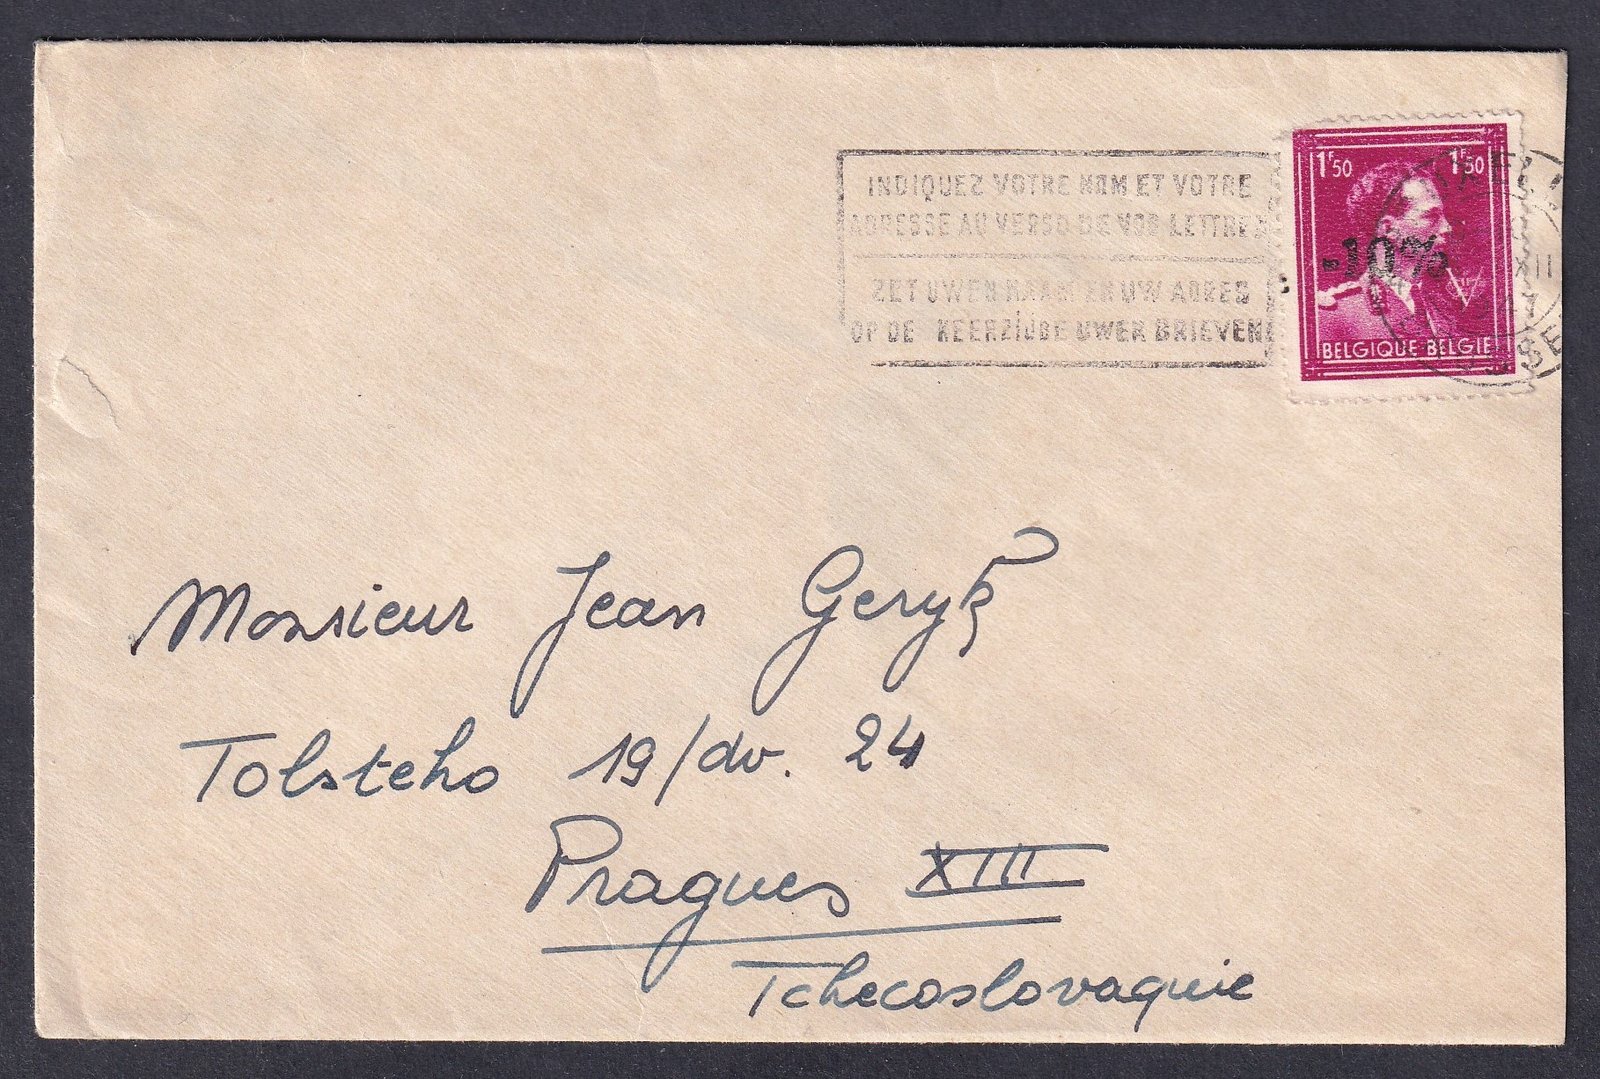 INDIQUEZ VOTRE NOM ET VOTRE
ADRESSE AU VERSO DE VOS LETTRES
ZET UWEN NAAM EN UW ADRES
OP DE KEERZIJDE UWER BRIEVEN
1F50 1F50
-10%
XII
BELGIQUE BELGIE
Monsieur Jean Geryk
Tolsteho 19/dv. 24
Pragues XIII
Tchecoslovaquie